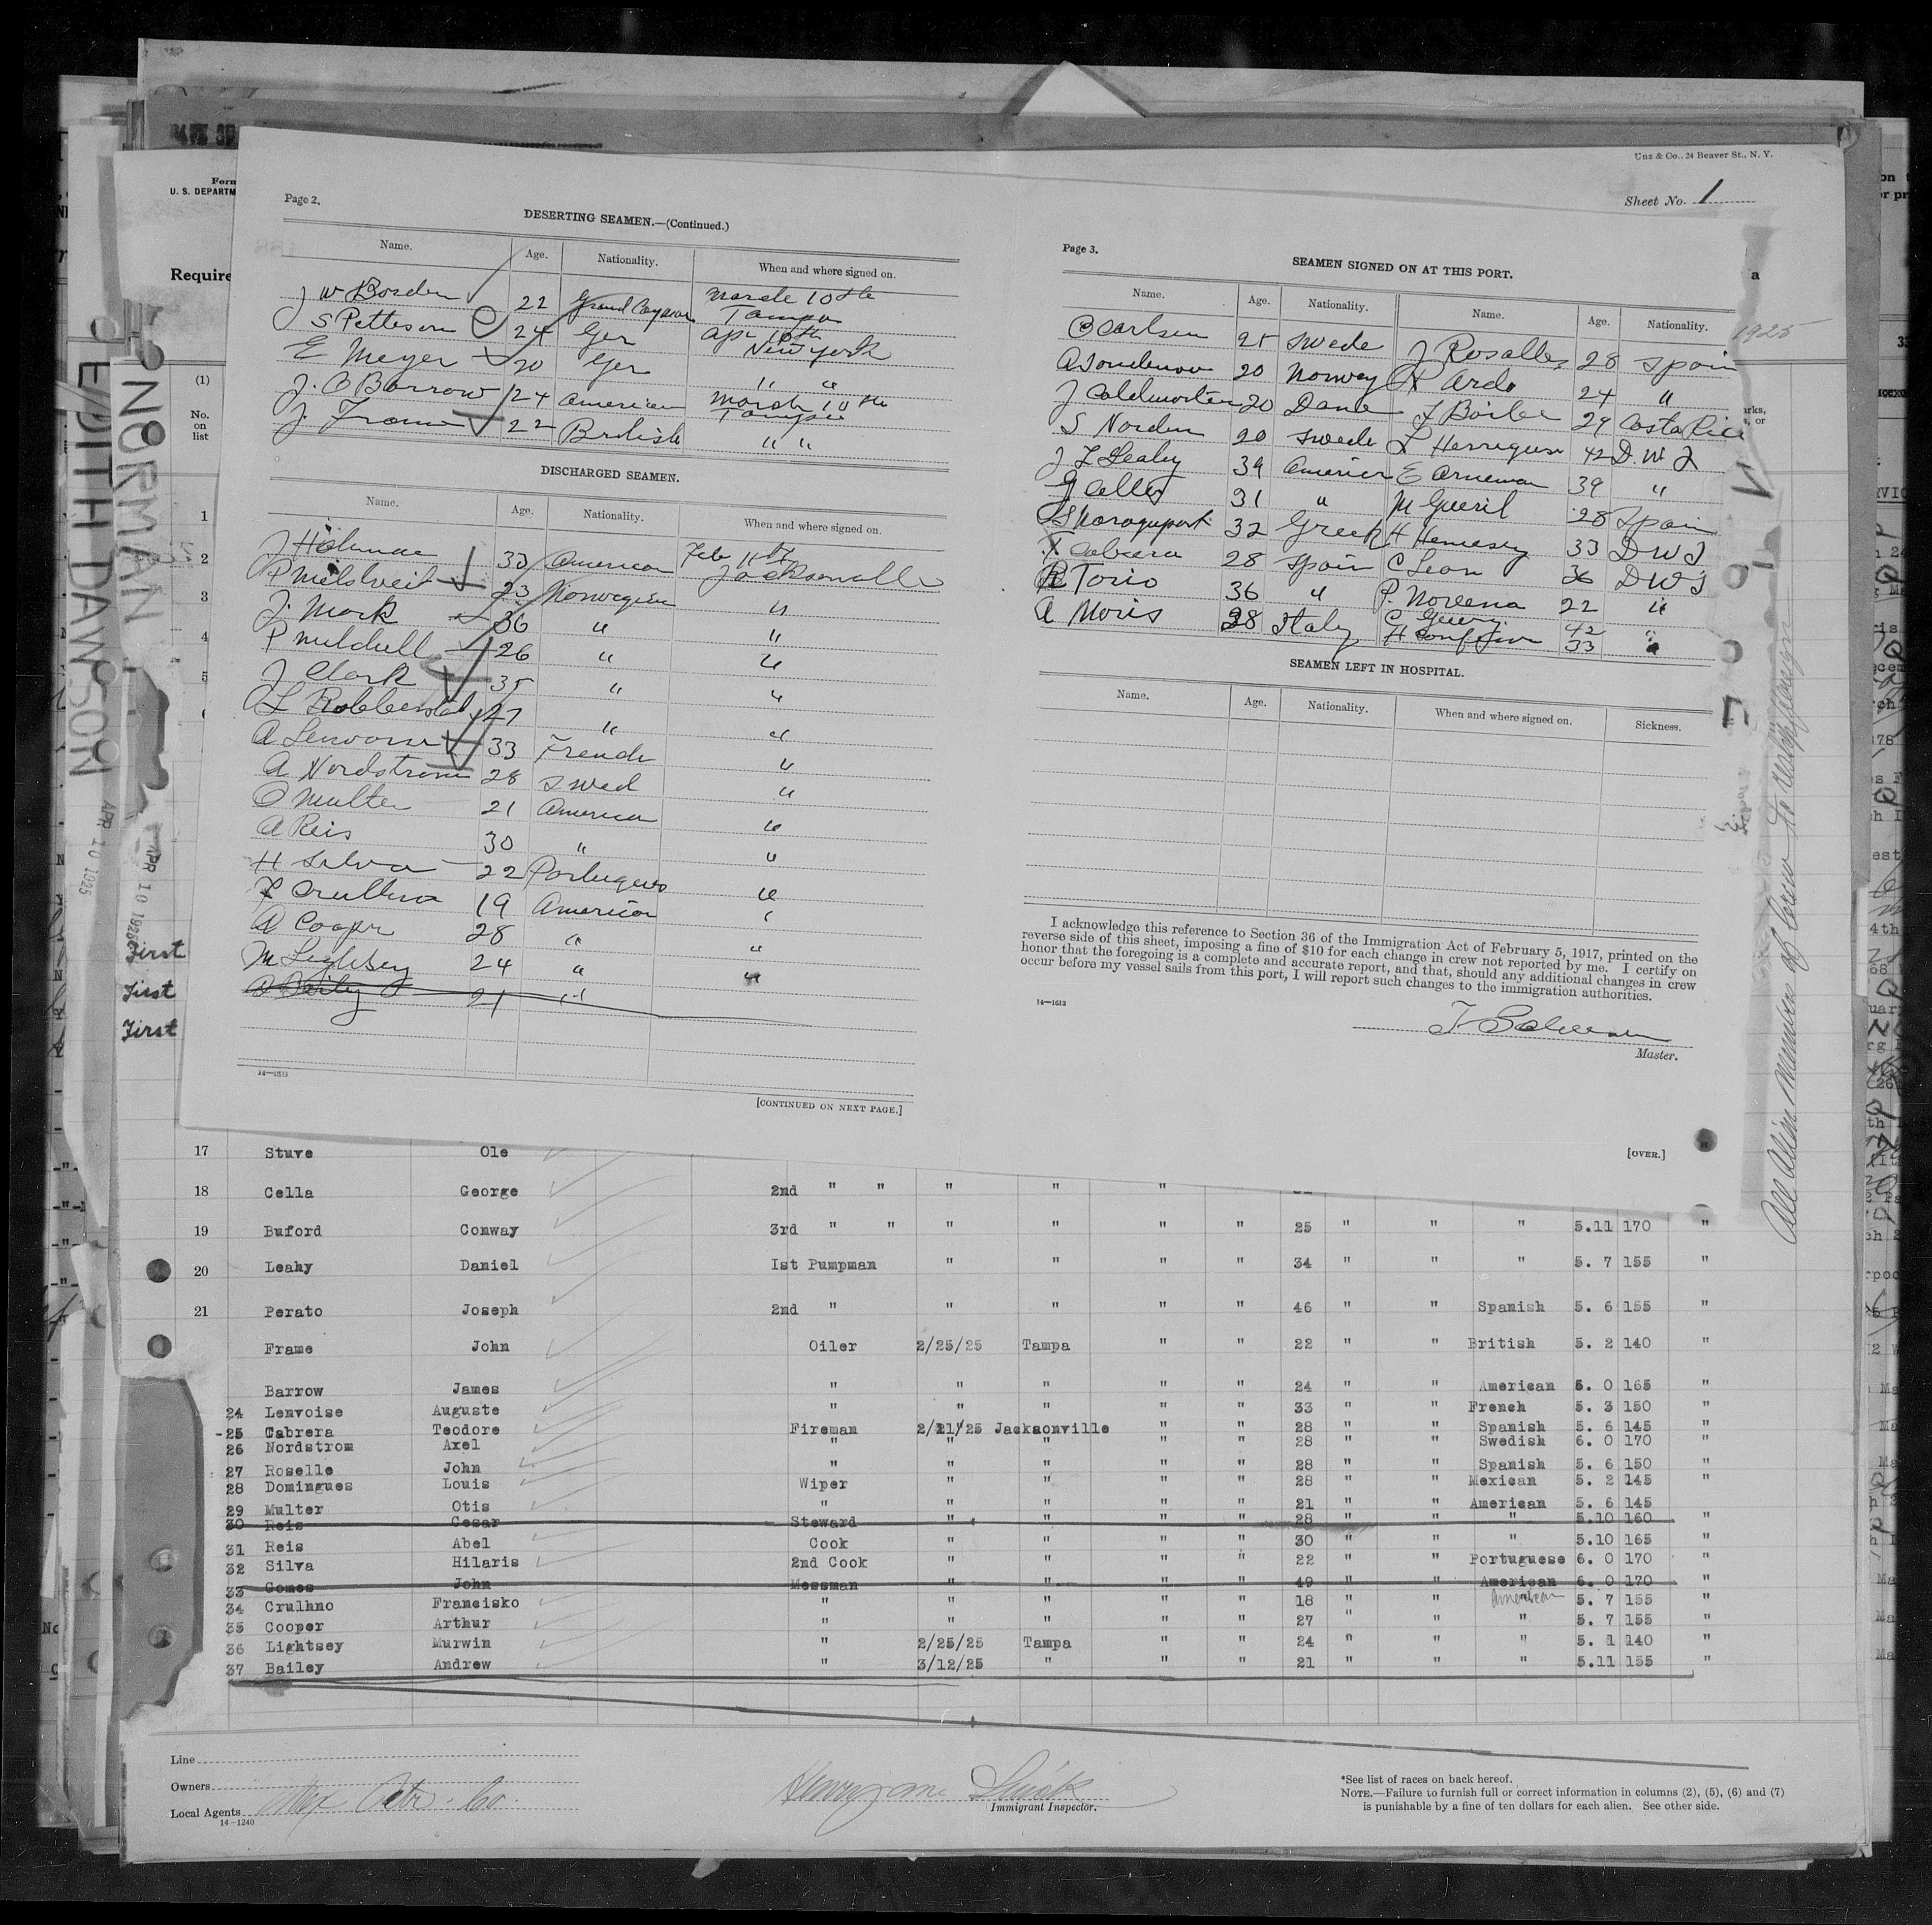 Unz & Co., 24 Beaver St., N. Y.
Sheet No. 1
Form
U. S. DEPARTM
Require
(1)
No.
on
list
1
2
3
4
5
NORMAN
EDITH DAWSON
APR 10 1925
APR 10 1925
First
First
First
Page 2.
DESERTING SEAMEN.—(Continued.)
Name. Age. Nationality. When and where signed on.
J W Borden 22 Grand Cayman March 10th Tampa
J S Petterson 24 Ger Apr 10th New York
E Meyer 20 Ger " "
J. O Barrow 24 American March 10th Tampa
J. Frame 22 British " "
DISCHARGED SEAMEN.
Name. Age. Nationality. When and where signed on.
J Holmac 33 American Feb 11th Jacksonville
P 23 Norwegian "
J. Mork 36 " "
P Mitchell 26 " "
J Clark 35 " "
L 27 " "
A Lenvoise 33 French "
A Nordstrom 28 Swed "
O Multer 21 America "
A Reis 30 " "
H Silva 22 Portuguese "
F Crulhno 19 American "
A Cooper 28 " "
M Lightsey 24 " "
A Bailey 21 "
14—1613
[CONTINUED ON NEXT PAGE.]
Page 3.
SEAMEN SIGNED ON AT THIS PORT.
Name. Age. Nationality. Name. Age. Nationality.
O Carlsen 25 Swede J Rosalles 28 Spain
A 20 Norway Ardo 24 "
J 20 Dane 29 Costa Rica
S Norden 20 Swede L 42 D. W I
J L Leahy 39 America E 39 "
G Cella 31 " M 28 Spain
32 Greek H Hennesey 33 D W I
T Cabrera 28 Spain C Leon 36 D W I
R Torio 36 " P. Novena 22 "
A Moris 38 Italy C 42 "
H 33 "
SEAMEN LEFT IN HOSPITAL.
Name. Age. Nationality. When and where signed on. Sickness.
I acknowledge this reference to Section 36 of the Immigration Act of February 5, 1917, printed on the
reverse side of this sheet, imposing a fine of $10 for each change in crew not reported by me. I certify on
honor that the foregoing is a complete and accurate report, and that, should any additional changes in crew
occur before my vessel sails from this port, I will report such changes to the immigration authorities.
14—1613
Master.
[OVER.]
1925
All Alien Members of Crew to reship foreign
17 Stuve Ole
18 Cella George 2nd " " " " "
19 Buford Conway 3rd " " " " " " 25 " " " 5.11 170 "
20 Leahy Daniel 1st Pumpman " " " " 34 " " " 5. 7 155 "
21 Perato Joseph 2nd " " " " " 46 " " Spanish 5. 6 155 "
Frame John Oiler 2/25/25 Tampa " " 22 " " British 5. 2 140 "
Barrow James " " " " " 24 " " American 5. 0 165 "
24 Lenvoise Auguste " " " " " 33 " " French 5. 3 150 "
25 Cabrera Teodore Fireman 2/11/25 Jacksonville " " 28 " " Spanish 5. 6 145 "
26 Nordstrom Axel " " " " " 28 " " Swedish 6. 0 170 "
27 Roselle John " " " " " 28 " " Spanish 5. 6 150 "
28 Domingues Louis Wiper " " " " 28 " " Mexican 5. 2 145 "
29 Multer Otis " " " " " 21 " " American 5. 6 145
30 Reis Cesar Steward " " " " 28 " " " 5.10 160 "
31 Reis Abel Cook " " " " 30 " " " 5.10 165 "
32 Silva Hilaris 2nd Cook " " " " 22 " " Portuguese 6. 0 170 "
33 Gomes John Messman " " " " 49 " " American 6. 0 170 "
34 Crulhno Francisko " " " " " 18 " " American 5. 7 155 "
35 Cooper Arthur " " " " " 27 " " " 5. 7 155 "
36 Lightsey Murwin " 2/25/25 Tampa " " 24 " " " 5. 1 140 "
37 Bailey Andrew " 3/12/25 " " " 21 " " " 5.11 155 "
Line
Owners
Local Agents Mex Petr. Co.
14—1240
Immigrant Inspector.
*See list of races on back hereof.
NOTE.—Failure to furnish full or correct information in columns (2), (5), (6) and (7)
is punishable by a fine of ten dollars for each alien. See other side.